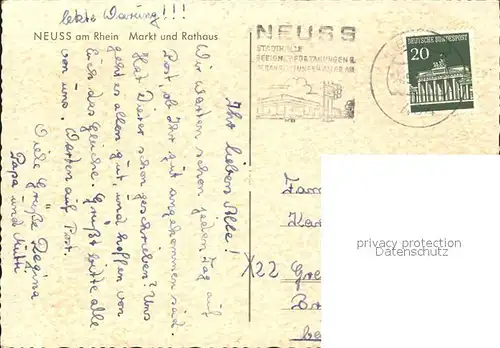 letzte Warnung!!!
NEUSS am Rhein Markt und Rathaus
Ihr lieben Alle!
Wir warten schon jeden Tag auf
Post, ob Ihr gut angekommen seid.
Hat Dieter schon geschrieben? Uns
geht es allen gut, und hoffen von
Euch das gleiche. Grüßt bitte alle
von uns. Warten auf Post.
Viele Grüße Regina
Papa und Mutti
NEUSS
STADTHALLE
20
DEUTSCHE BUNDESPOST
X22
privacy protection
Datenschutz